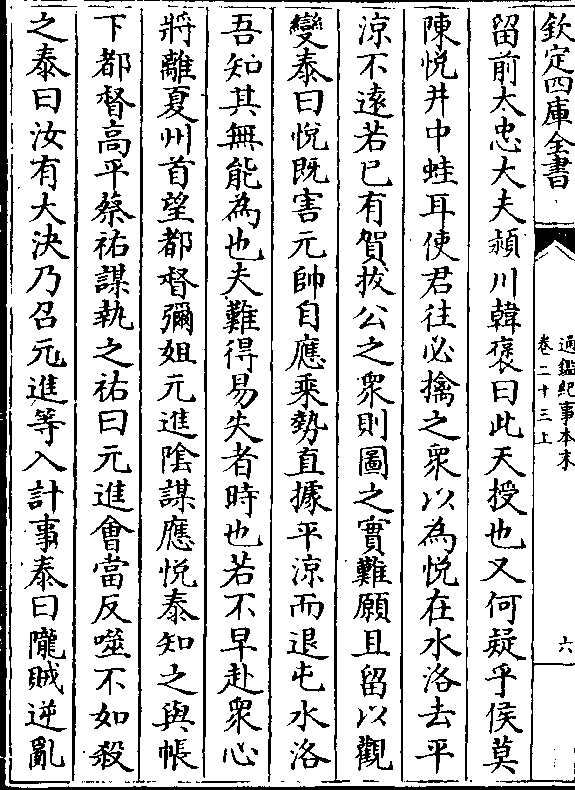 欽定四庫全書
通鑑紀事本末
卷二十三上
六
留前太忠大夫潁川韓褒曰此天授也又何疑乎侯莫
陳悅井中蛙耳使君往必擒之衆以為悅在水洛去平
涼不遠若已有賀拔公之衆則圖之實難願且留以觀
變泰曰悅既害元帥自應乘勢直據平涼而退屯水洛
吾知其無能為也夫難得易失者時也若不早赴衆心
將離夏州首望都督彌姐元進陰謀應悅泰知之與帳
下都督高平蔡祐謀執之祐曰元進會當反噬不如殺
之泰曰汝有大決乃召元進等入計事泰曰隴賊逆亂